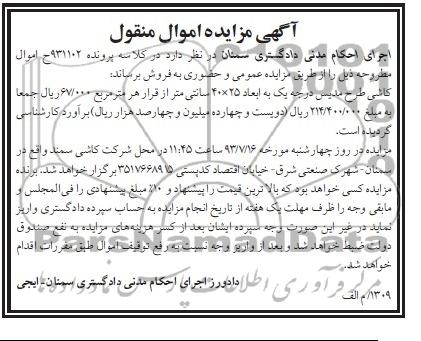 آگهی مزایده اموال منقول
اجرای احکام مدنی دادگستری سمنان در نظر دارد در کلاسه پرونده ۹۳۱۱۰۲ج اموال
مطروحه ذیل را از طریق مزایده عمومی و حضوری به فروش برساند:
کاشی طرح مدیس درجه یک به ابعاد ۲۵×۴۰ سانتی متر از قرار هر مترمربع ۶۷/۰۰۰ ریال جمعا
به مبلغ ۲۱۴/۴۰۰/۰۰۰ ریال (دویست و چهارده میلیون و چهارصد هزار ریال) برآورد کارشناسی
گردیده است.
مزایده در روز چهارشنبه مورخه ۹۳/۷/۱۶ ساعت ۱۱:۴۵ در محل شرکت کاشی سمند واقع در
سمنان- شهرک صنعتی شرق- خیابان اقتصاد کدپستی ۳۵۱۷۶۶۸۹۱۵ برگزار خواهد شد. برنده
مزایده کسی خواهد بود که بالاترین قیمت را پیشنهاد و ۱۰٪ مبلغ پیشنهادی را فی‌المجلس و
مابقی وجه را ظرف مهلت یک هفته از تاریخ انجام مزایده به حساب سپرده دادگستری واریز
نماید در غیر این صورت وجه سپرده ایشان بعد از کسر هزینه‌های مزایده به نفع صندوق
دولت ضبط خواهد شد و بعد از واریز وجه نسبت به رفع توقیفت اموال طبق مقررات اقدام
خواهد شد.
دادورز اجرای احکام مدنی دادگستری سمنان- ایجی
۱۳۰۹/م الف